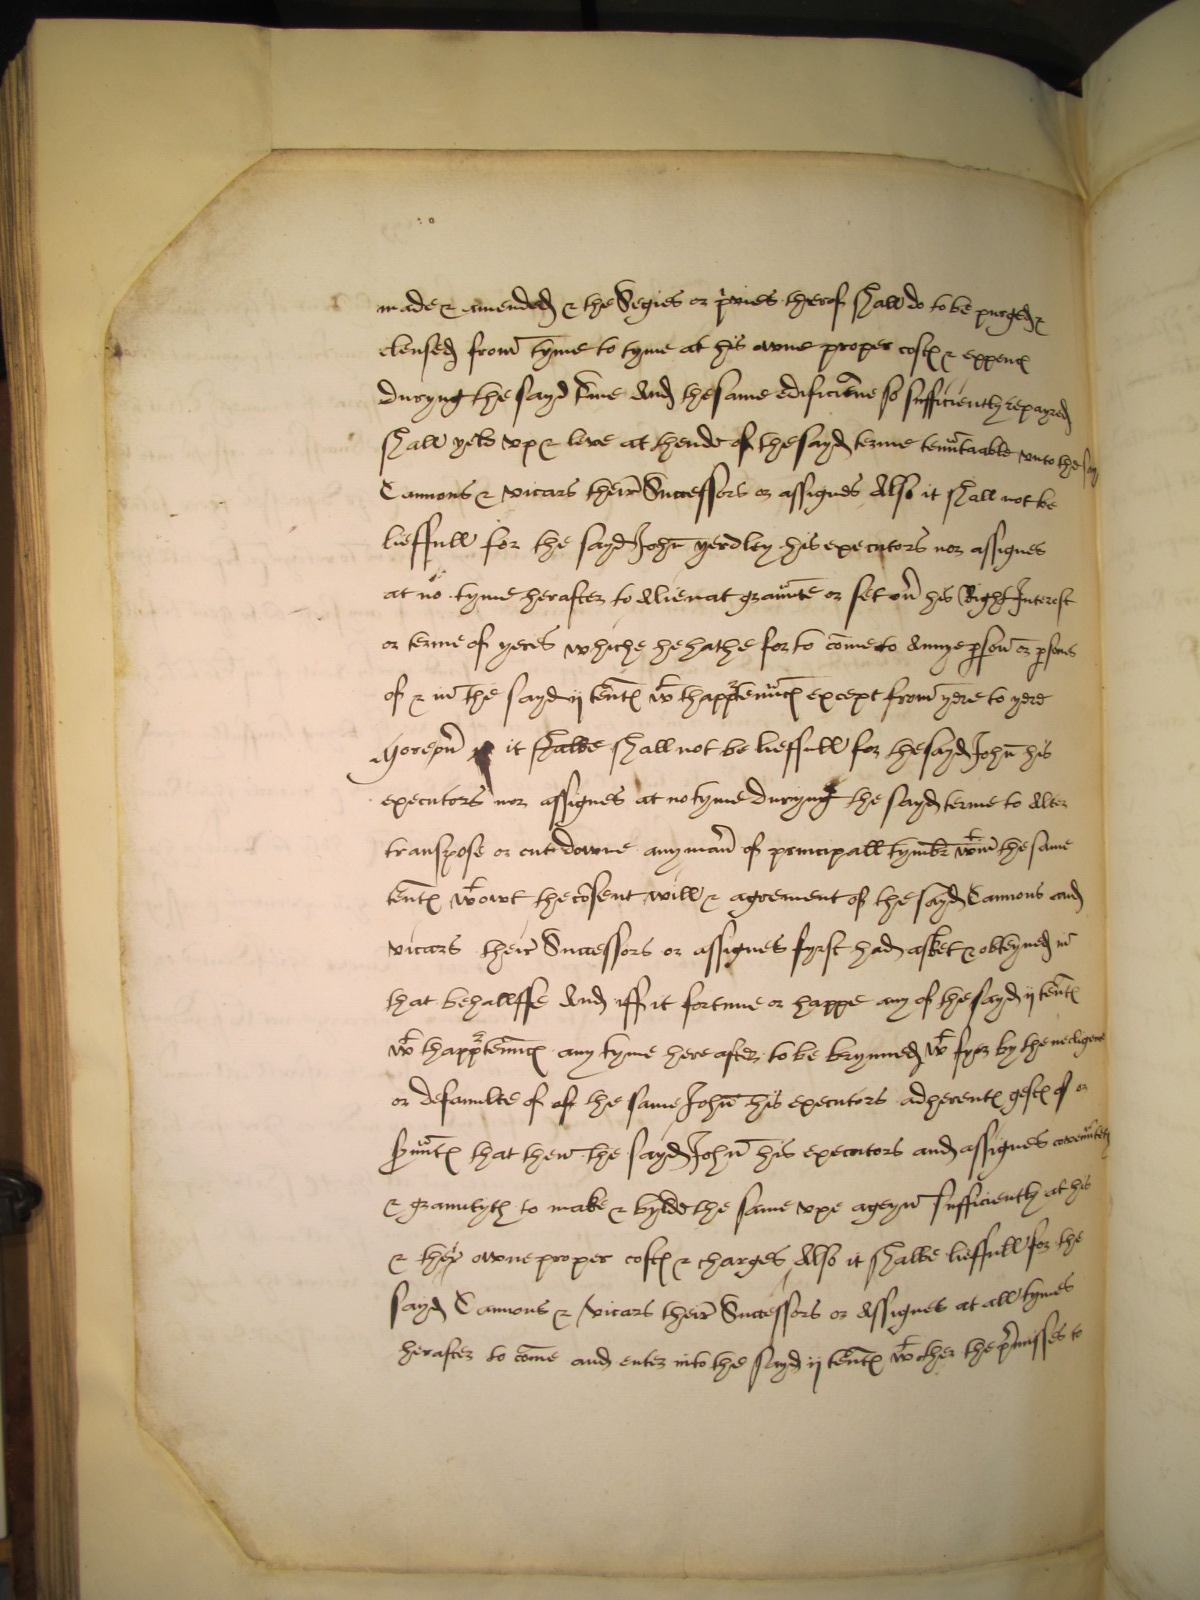 made & amended & the Segies or p̄vies therof shall do to be purged &
clensed from̄ tyme to tyme at his owne proper cost & expenc
duryng the sayd t̄me And the same edificiēne so sufficiently repayred
shall yeld vp & leve at thende of the sayd terme tenūtaable vnto the say
Cannons & vicars their̄ Successors or assignes Also it shall not be
lieffull for the sayd John̄ yerdley his executors nor assignes
at no tyme herafter to Alienat graūnte or set ov̄ his Right Interest
or terme of yeres whiche he hathe for to cōme to Annye psoñ or psones
of & in̄ the sayd ij ten̄t wt thapp̄tenn̄c except from̄ yere to yere
it shalbe shall not be lieffull for the sayd John̄ his
executors nor assignes at no tyme duryng the sayd terme to Alter
transpose or cut downe any man̄ of principall tymbr̄ wtin̄ the same
ten̄t wtowt the cōsent will & agreement of the sayd Cannons and
vicars their̄ Successors or assignes fyrst had asket & obteyned in̄
that behallffe And iff it fortune or happe any of the sayd ij ten̄t
wt thapp̄tenn̄c any tyme here after to be brynned wt fyer by the necligence
or defaulte of of the same John̄ his executors adherent gest of or
s̄vūnt that then̄ the sayd John̄ his executors and assignes covenūtyth
& grauntyth to make & bylde the same vpe ageyn̄ sufficiently at his
& they owne proper cost & charges Also it shalbe lieffull for the
sayd Cannons & Vicars their̄ Successors or Assignes at all tymes
herafter to cōme and enter into the sayd ij ten̄t wt other the p̄misses to